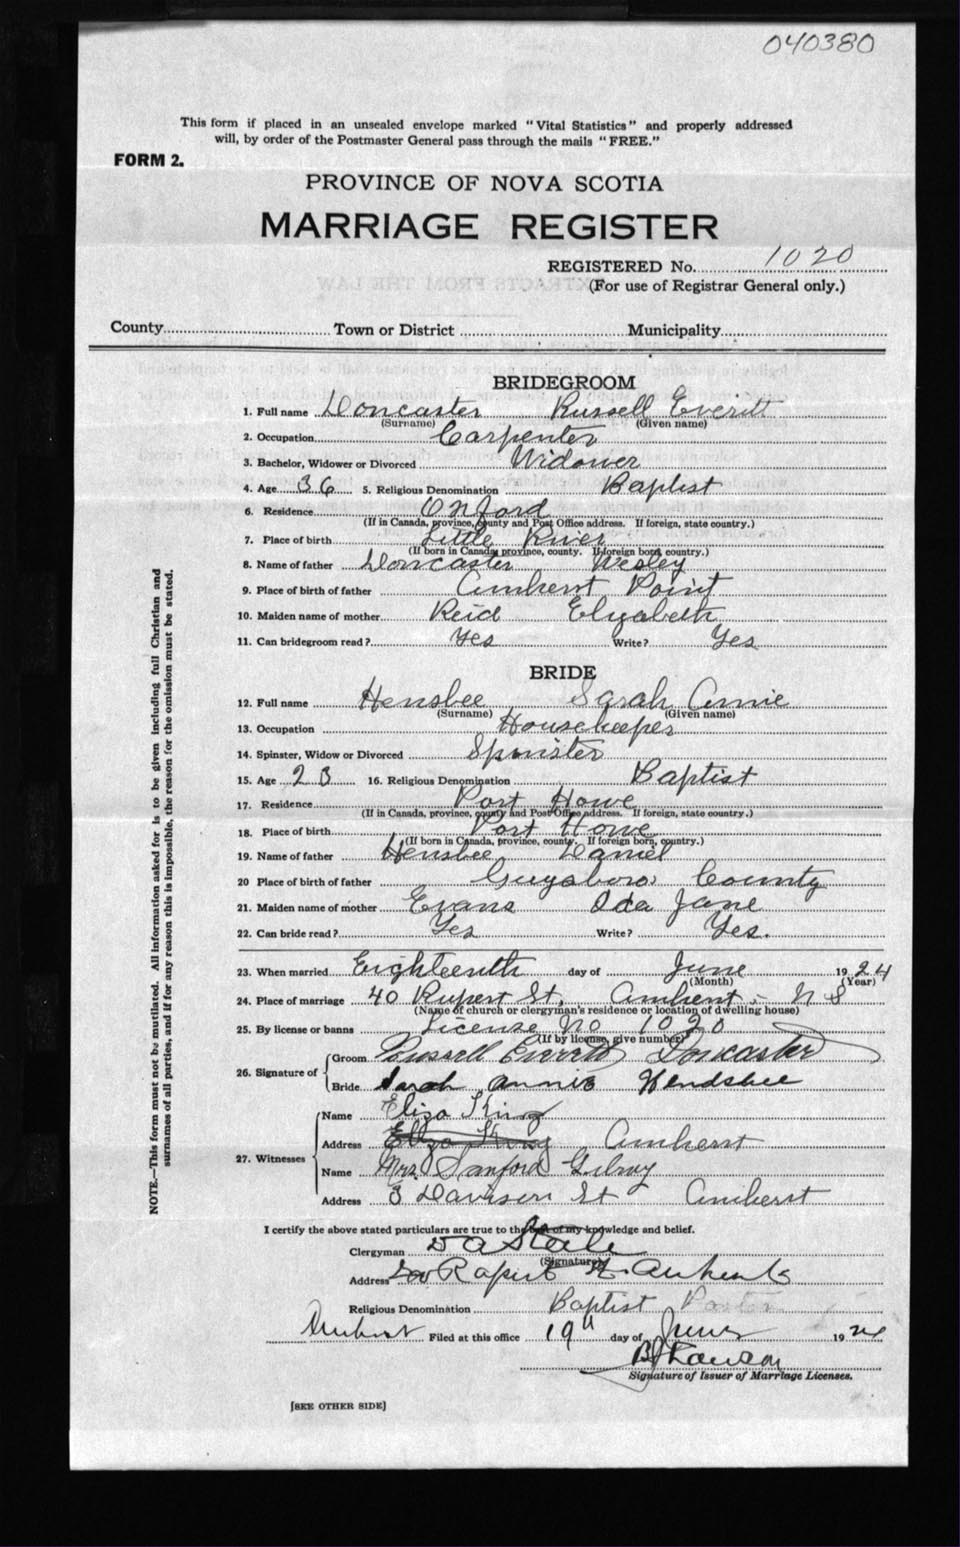 040380
This form if placed in an unsealed envelope marked "Vital Statistics" and properly addressed
will, by order of the Postmaster General pass through the mails "FREE."
FORM 2.
PROVINCE OF NOVA SCOTIA
MARRIAGE REGISTER
REGISTERED No. 1020
(For use of Registrar General only.)
County Town or District Municipality
BRIDEGROOM
1. Full name Doncaster Russell Everitt
(Surname) (Given name)
2. Occupation Carpenter
3. Bachelor, Widower or Divorced Widower
4. Age 36 5. Religious Denomination Baptist
6. Residence Oxford
(If in Canada, province, county and Post Office address. If foreign, state country.)
7. Place of birth Little River
(If born in Canada, province, county. If foreign born, country.)
8. Name of father Doncaster Wesley
9. Place of birth of father Amherst Point
10. Maiden name of mother Reid Elizabeth
11. Can bridegroom read? Yes Write? Yes
BRIDE
12. Full name Hensbee Sarah Annie
(Surname) (Given name)
13. Occupation Housekeeper
14. Spinster, Widow or Divorced Spinster
15. Age 23 16. Religious Denomination Baptist
17. Residence Port Howe
(If in Canada, province, county and Post Office address. If foreign, state country.)
18. Place of birth Port Howe
(If born in Canada, province, county. If foreign born, country.)
19. Name of father Hensbee Daniel
20 Place of birth of father Guysboro County
21. Maiden name of mother Evans Ida Jane
22. Can bride read? Yes Write? Yes.
23. When married Eighteenth day of June 1924
(Month) (Year)
24. Place of marriage 40 Rupert St, Amherst - N S
(Name of church or clergyman's residence or location of dwelling house)
25. By license or banns License No 1020
(If by license, give number)
26. Signature of
Groom Russell Everett Doncaster
Bride Sarah Annie Hendsbee
27. Witnesses
Name Eliza King
Address Eliza King Amherst
Name Mrs. Sanford Gilroy
Address 3 Davison St Amherst
I certify the above stated particulars are true to the best of my knowledge and belief.
Clergyman D A Steele
(Signature)
Address Rupert St. Amherst
Religious Denomination Baptist Pastor
Amherst Filed at this office 19th day of June 1924
Signature of Issuer of Marriage Licenses.
[SEE OTHER SIDE]
NOTE.—This form must not be mutilated. All information asked for is to be given including full Christian and
surnames of all parties, and if for any reason this is impossible, the reason for the omission must be stated.